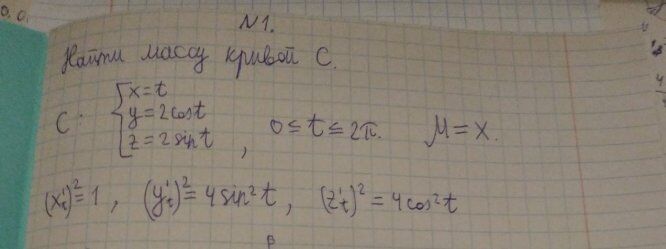 N1.
Найти массу кривой C.
C: { x=t
y=2cost
z=2sint, 0≤t≤2π. M=x.
(x't)²=1, (y't)²=4sin²t, (z't)²=4cos²t